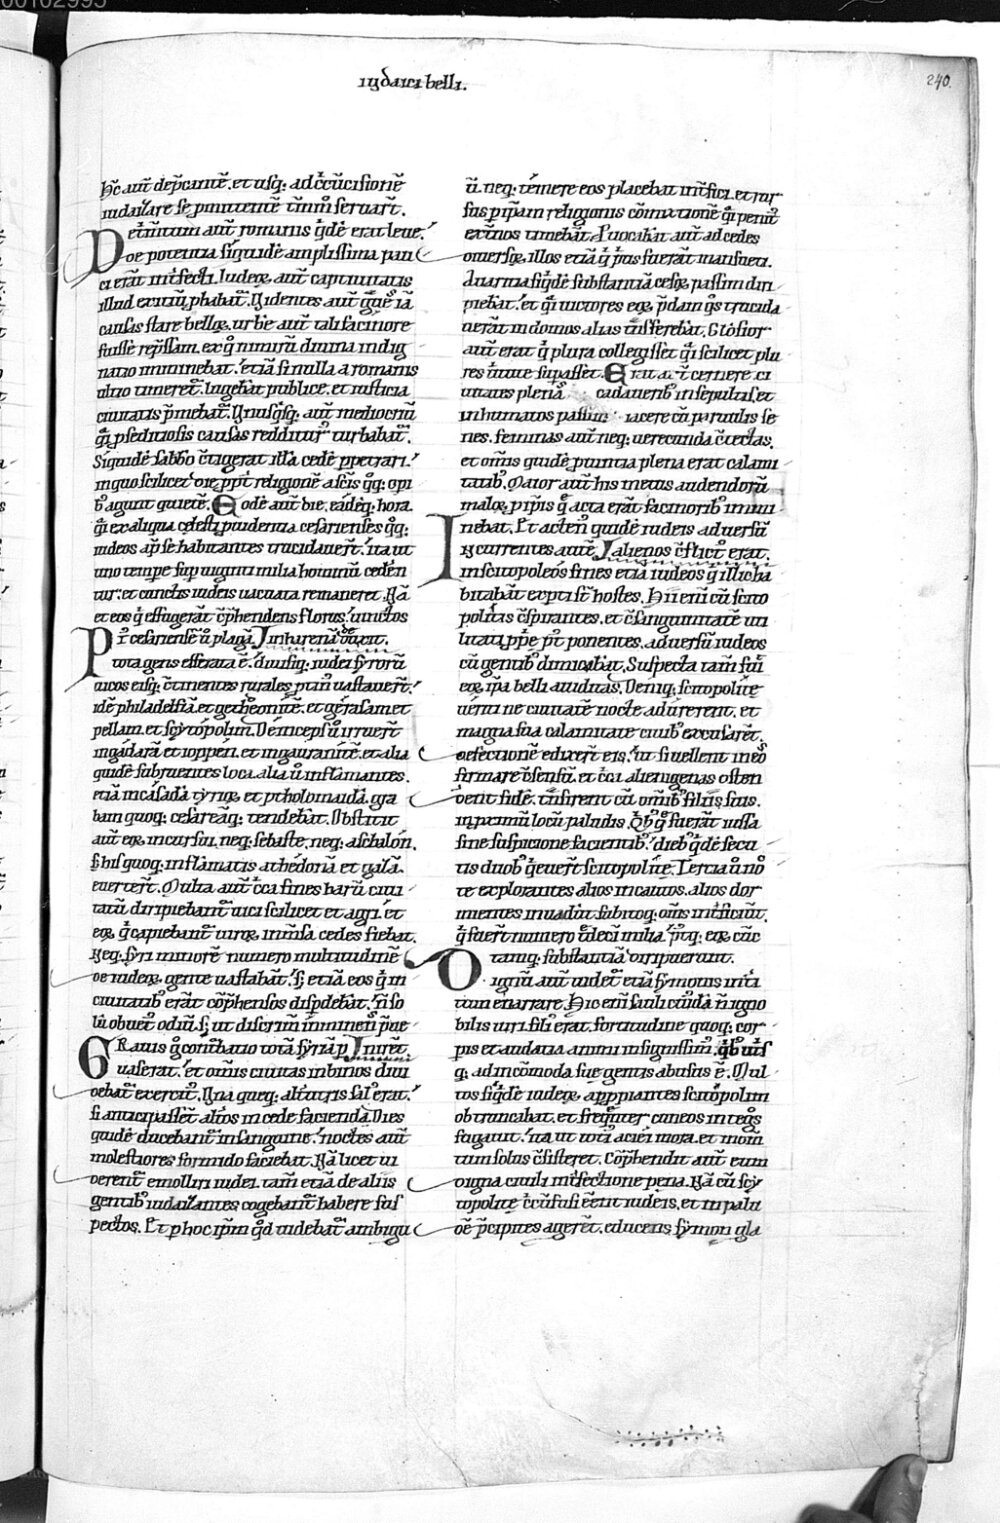 iudaici belli.
240.
hc̄ aut̄ dep̄cantē. et usq; ad c̄cūcisionē
iudaizare se pmittentē tm̄m̄ seruart̄.
Detm̄tum aut̄ romanis qͥdē erat leue.
De potentia siquidē amplissima pau
ci erāt int̄fecti. Iudeoꝝ aut̄ captiuitatis
illud exitiū ꝓbabat̄. Videntes aut̄
causas stare belloꝝ. urbē aut̄ tali facinore
fuisse rep̄ssam. ex qͦ nimirū diuina indig
natio imminebat. etiā si nulla a romanis
ultio timeret̄. lugebāt publice. et iusticia
ciuitatis p̄mebat̄. Vnusqͥsq; aut̄ mediocriū
qͥ ꝓ seditiosis causas redditurꝰ turbabat̄.
Siquidē sabbo c̄tigerat illā cedē ꝑpetrari.
in quo scilicet die ꝓpt̄ religionē a sc̄is qͦq; opi
bꝰ agunt quietē. Eodē aut̄ die. eādēq; hora.
qͥ ex aliqua celesti ꝓuidentia cesarienses qͦq;
iudeos ap̄ se habitantes trucidauert̄. ita ut
uno tempe sup uiginti milia hominū cedēn
tur. et cunctis iudeis uacuata remaneret. Nā
et eos qͥ effugerāt c̄p̄hendens florus. uinctos
Pꝰ cesariensē u̅ plagā, in harenā duxit.
tota gens efferata ē. diuisiq; iudei syroꝝ
uicos eisq; c̄tinentes rurales ptin̄ uastauert̄.
idē philadelfiā. et gecheonitē. et gerasam et
pellam. et scytopolim. Deinceps u̅ irruert̄
in gadarā et ioppen. et in gauranitē. et alia
quidē subruentes loca. alia u̅ inflāmantes.
etiā in casadā tyriꝝ. et ptholomaidā. ga
bam quoq; cesareāq; tendebāt. Obstitit
aut̄ eoꝝ incursui. neq; sebaste. neq; aschalon.
s; his quoq; inflāmatis athedoniā et gazā
euertert̄. Multa aut̄ c̄ca fines harū ciui
tatū diripiebant̄ uici scilicet et agri. et
eoꝝ qͥ capiebant̄ uiroꝝ. inm̄sa cedes fiebat.
Neq; syri minorē numero multitudinē
de iudeoꝝ gente uastabāt. s; etiā eos qͥ in
ciuitatibꝰ erāt cōp̄hensos disꝑdebāt. n̄ so
lū ob uet̄ odiū. s; ut discrim̄ inminen̄ p̄ue
Grauis qͦ c̄turbatio totā syriā ꝑ, nirēt.
uaserat. et om̄is ciuitas in binos diui
debat̄ exercitꝰ. Vna queq; alt̄i partis salꝰ erat.
si anticipasset alios in cede facienda. Dies
quidē ducebant̄ in sanguine. noctes aut̄
molestiores formido faciebat. Nā licet ui
derent̄ emolliri iudei. tam̄ etiā de aliis
gentibꝰ iudaizantes cogebant̄ habere sus
pectos. Et ꝑ hoc ip̄m qͦd uidebat̄ ambigu
u̅. neq; temere eos placebat int̄fici. et rur
sus ꝓp̄am religionis cōmixtionē qͥ penit̄
ext̄nos timebāt. Prouocabāt aut̄ ad cedes
omersoꝝ. illos etiā qͥ pͥus fuerāt mansueti.
Auaritia siqͥdē substantiā cesoꝝ passim diri
piebat. et qͥ uictores eoꝝ p̄dam qͣs trucida
uerāt in domos alias t̄nsferebāt. Gl̄osior
aut̄ erat qͥ plura collegisset. qͥ scilicet plu
res uirtute supasset. Erat a. t̄ cernere ci
uitates plenā cadaueribꝰ insepultis. et
inhumatos passim iacere cū paruulis se
nes. feminas aut̄ neq; uerecunda c̄tectas.
et om̄is quidē ꝓuintia plena erat calami
tatibꝰ. Maior aut̄ his metus audendoꝝ
maloꝝ. ꝓp̄is qͥ acta erāt facinoribꝰ immi
nebat. Et actenꝰ quidē iudeis aduersū
Incurrentes autē, alienos c̄flictꝰ erat.
in scitopoleos fines etiā iudeos qͥ illic ha
bitabāt exꝑti st̄ hostes. Hii eni cū scito
politis c̄spirantes. et c̄sanguinitatē uti
litati ꝓp̄e pꝰ ponentes. aduersū iudeos
cū gentibꝰ dimicabāt. Suspecta tam̄ fuit
eoꝝ ip̄a belli auiditas. Deniq; scitopolite
ueriti ne ciuitatē nocte adurerent. et
magna sua calamitate ciuibꝰ excusarēt.
defectionē edixert̄ eis. ut si uellent in eos
firmare c̄sensū. et c̄ca alienigenas osten
dent fidē. t̄nsirent cū omībꝰ filiis suis.
in ꝓximū locū paludis. Qͥbꝰ qͦ fuerāt iussa
sine suspicione facientibꝰ. diebꝰ qͥdē secu
tis duobꝰ qͥeuert̄ scitopolite. Tertia u̅ noc
te explorantes alios incautos. alios dor
mientes inuadūt. subitoq; om̄s int̄ficiūt.
qͥ fuert̄ numero t̄decī milia. p̄tq; eoꝝ cūc
tamq; substantiā diripuerunt.
Dignū aut̄ uidet̄ etiā symonis int̄i
tum enarrare. Hic eni sauli cuiꝰdā n̄ igno
bilis uiri filiꝰ erat. fortitudine quoq; cor
pis et audatia animi insignissimꝰ. qͥbꝰ utꝰ
q; ad incōmoda sue gentis abusus ē. Mul
tos siqͥdē iudeoꝝ. app̄piantes scitopolim
obtruncabat. et freqͣnter cuneos integͦs
fugauit. ita ut totiꝰ aciei mora. et mom̄
tum solus c̄sisteret. Cōp̄hendit aut̄ eum
digna ciuili int̄fectione pena. Nā cū scy
topolite c̄cūfusi eent iudeis. et in palu
dē p̄cipites agerēt. educens symon gla